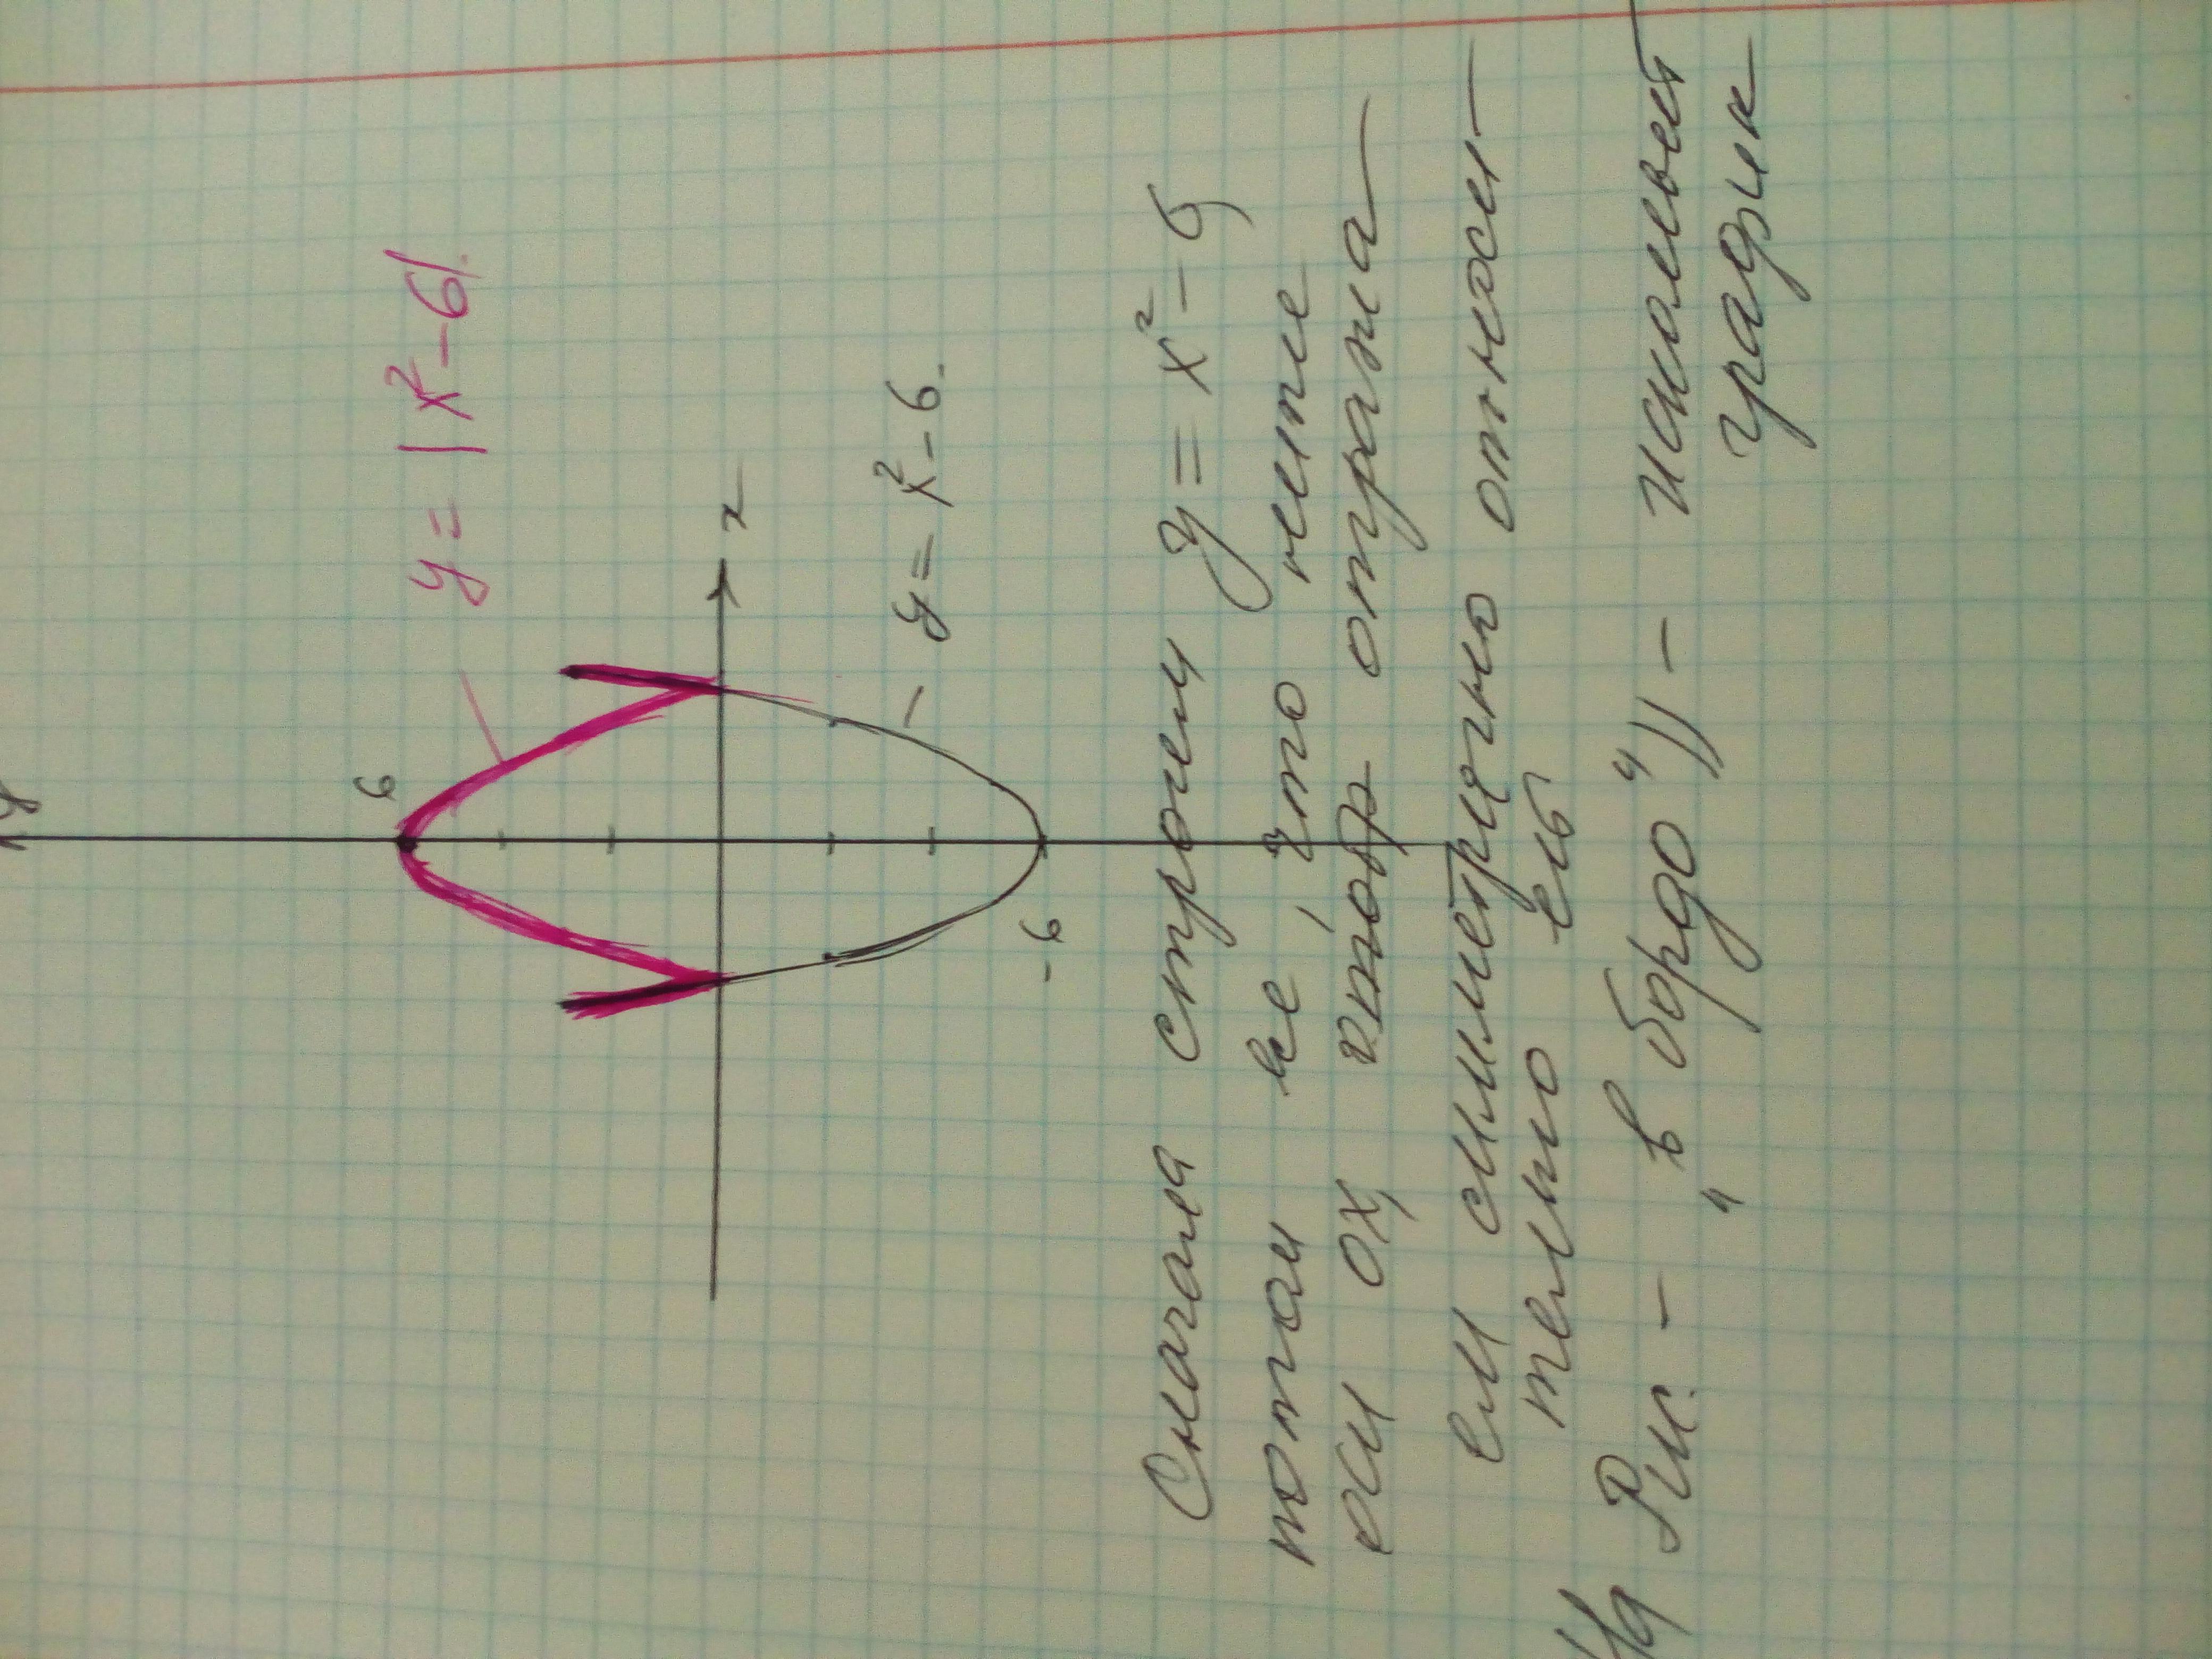 y
6
y = |x² - 6|.
x
y = x² - 6.
- 6
Сначала строим y = x² - 6
потом все, что ниже
оси ox, чтобр отража-
ем симметрично относи-
тельно её
На Рис. - "в бордо" - искомый
график